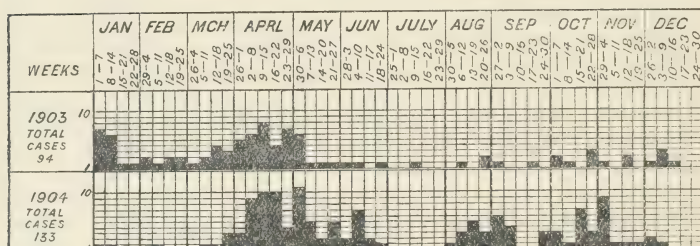 JAN FEB MCH APRL MAY JUN JULY AUG SEP OCT NOV DEC
WEEKS 1-7 8-14 15-21 22-28 29-4 5-11 12-18 19-25 26-4 5-11 12-18 19-25 26-1 2-8 9-15 16-22 23-29 30-6 7-13 14-20 21-27 28-3 4-10 11-17 18-24 25-1 2-8 9-15 16-22 23-29 30-5 6-12 13-19 20-26 27-2 3-9 10-16 17-23 24-30 1-7 8-14 15-21 22-28 29-4 5-11 12-18 19-25 26-2 3-9 10-16 17-23 24-30
1903 10
TOTAL
CASES
94 1
1904 10
TOTAL
CASES
133